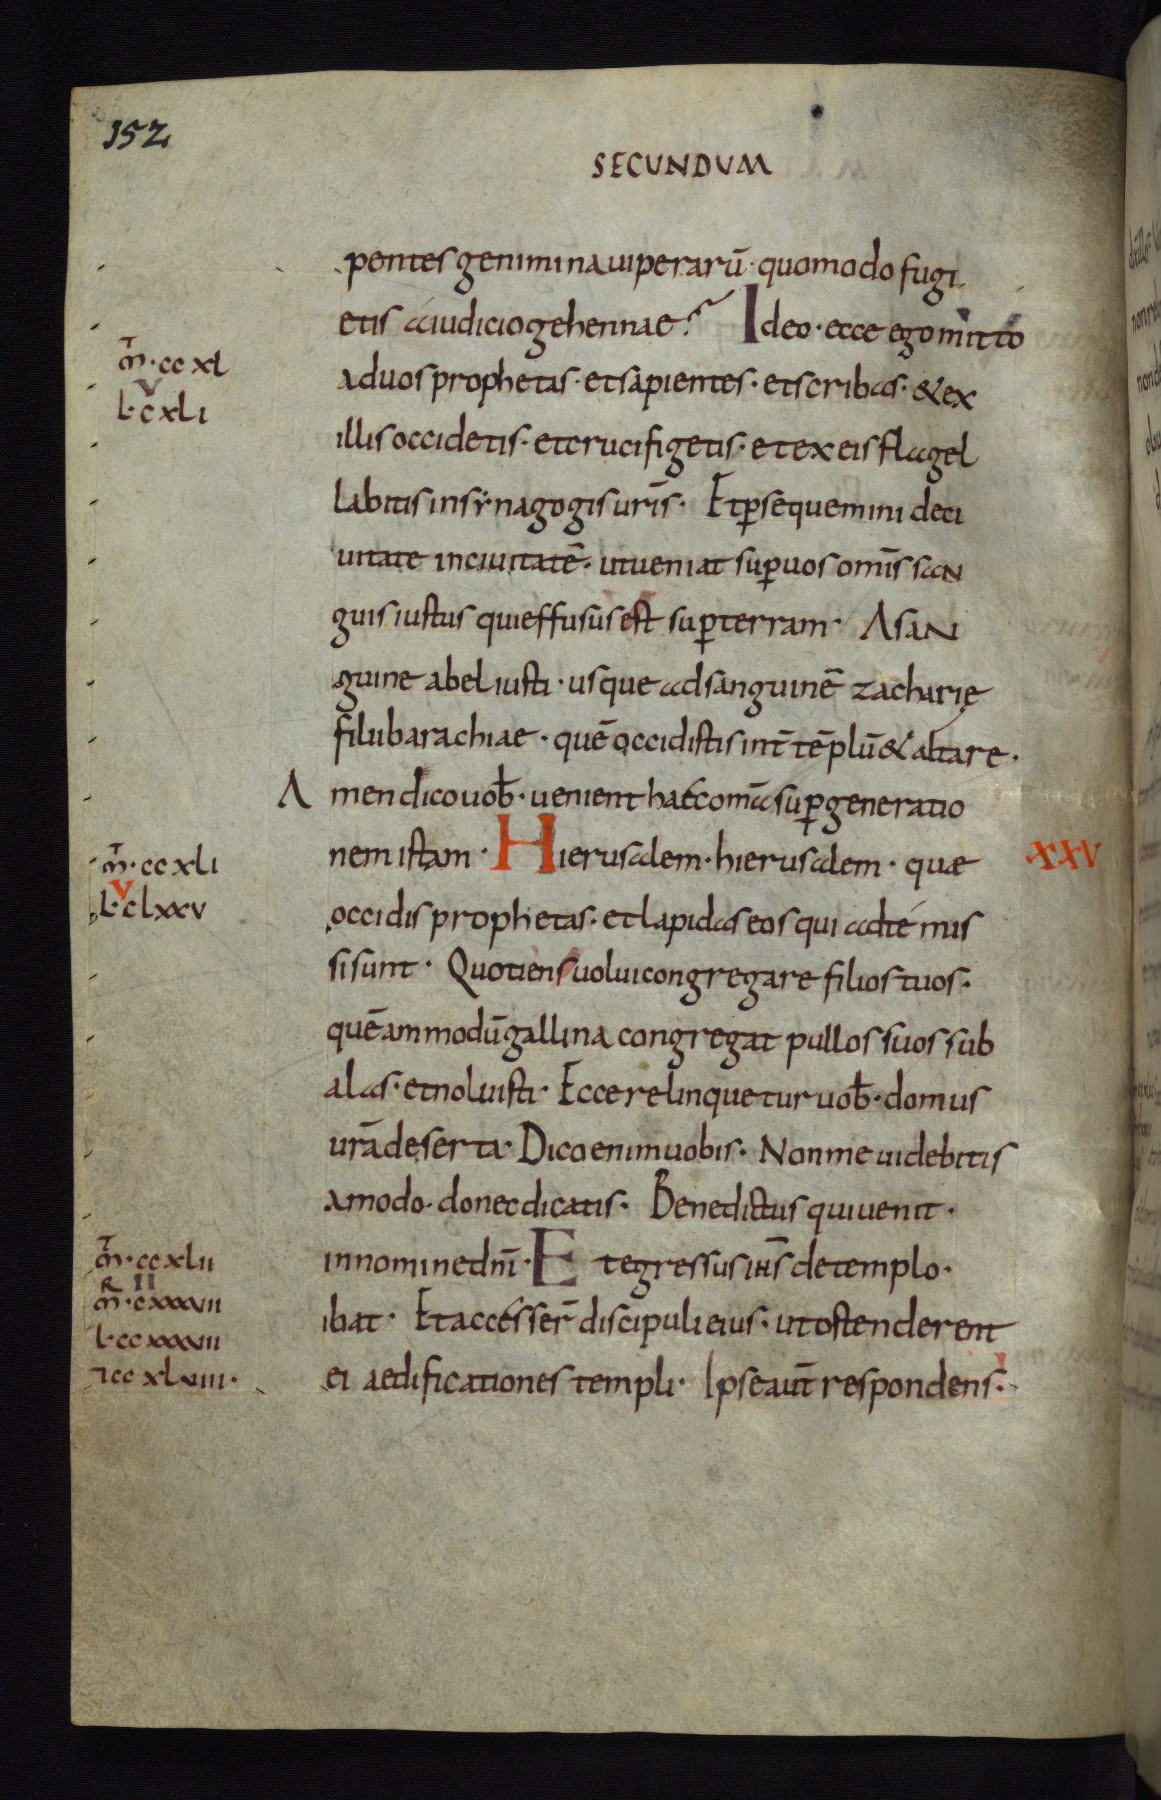 152
SECUNDUM
pentes genimina uiperarū· quomodo fugi
etis a iudicio gehennae? Ideo· ecce ego mitto
ad uos prophetas· et sapientes· et scribas· & ex
illis occidetis· et crucifigetis· et ex eis flagel
labitis in synagogis uris̄· Et p̲sequemini de ci
uitate in ciuitatē· ut ueniat sup̲ uos omīs san
guis iustus qui effusus est sup̲ terram· A san
guine abel iusti· usque ad sanguinē zacharię
filii barachiae· quē occidistis int̄ tēplū & altare·
Amen dico uob̄· uenient haec omīa sup̲ generatio
nem istam· Hierusalem· hierusalem· quae
occidis prophetas· et lapidas eos qui ad té mis
si sunt· Quotiens uolui congregare filios tuos·
quēammodū gallina congregat pullos suos sub
alas· et noluisti· Ecce relinquetur uob̄· domus
urā deserta· Dico enim uobis· Non me uidebitis
amodo· donec dicatis· Benedictus qui uenit·
in nomine dnī· Et egressus ihs̄ de templo·
ibat· Et accesser̄ discipuli eius· ut ostenderent
ei aedificationes templi· Ipse aut̄ respondens·
m̄·ccxl
v
l·cxli
m̄·ccxli
v
l·clxxv
XXV
m̄·ccxlii
R II
m̄·cxxxvii
l·ccxxxvii
⁊ccxlviii·